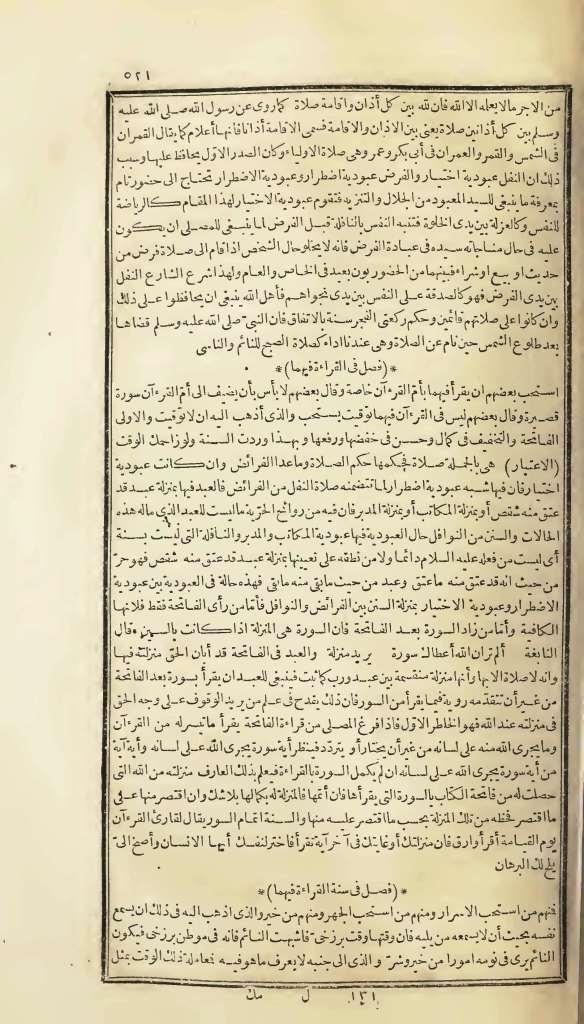 ٥٢١
من الاجر مالا يعلمه الا الله فان لله بين كل أذان واقامة صلاة كما روى عن رسول الله صلى الله عليه
وسلم بين كل أذانين صلاة يعنى بين الاذان والاقامة فسمى الاقامة أذانا فانها أعلام كما يقال القمران
فى الشمس والقمر والعمران فى أبى بكر وعمر وهى صلاة الاولياء وكان الصدر الاول يحافظ عليها وسبب
ذلك ان النفل عبودية اختيار والفرض عبودية اضطرار وعبودية الاضطرار تحتاج الى حضور تام
بمعرفة ما ينبغى للسيد المعبود من الجلال والتنزيه فتقوم عبودية الاختيار لهذا المقام كالرياضة
للنفس وكالعزلة بين يدى الخلوة فتنبه النفس بالنافلة قبل الفرض لما ينبغى للمصلى ان يكون
عليه فى حال مناجاته سيده فى عبادة الفرض فانه لا يخلو حال الشخص اذا قام الى صلاة فرض من
حديث او بيع او شراء فبينهما من الحضور بون بعيد فى الخاص والعام ولهذا شرع الشارع النفل
بين يدى الفرض فهو كالصدقة على النفس بين يدى نجواهم فأهل الله ينبغى ان يحافظوا على ذلك
وان كانوا على صلاتهم قائمين وحكم ركعتى الفجر سنة بالاتفاق فان النبى صلى الله عليه وسلم قضاها
بعد طلوع الشمس حين نام عن الصلاة وهى عندنا اداء كصلاة الصبح للنائم والناسى
*(فصل فى القراءة فيهما)*
استحب بعضهم ان يقرأ فيهما بأم القرءآن خاصة وقال بعضهم لا بأس بأن يضيف الى أم القرءآن سورة
قصيرة وقال بعضهم ليس فى القرءآن فيهما توقيت يستحب والذى أذهب اليه ان لا توقيت والاولى
الفاتحة والتخفيف فى كمال وحسن فى خفضها ورفعها وبهذا وردت السنة ولو زاحمك الوقت
(الاعتبار) هى بالجملة صلاة فحكمها حكم الصلاة وما عدا الفرائض وان كانت عبودية
اختيار فان فيها شبه عبودية اضطرار لما تتضمنه صلاة النفل من الفرائض فالعبد فيها بمنزلة عبد قد
عتق منه شقص أو بمنزلة المكاتب أو بمنزلة المدبر فان فيه من روائح الحرية ما ليست للعبد الذى ماله هذه
الحالات والسنن من النوافل حال العبودية فيها عبودية المكاتب والمدبر والنافلة التى ليست بسنة
أى ليست من فعله عليه السلام دائما ولا من نطقه على تعيينها بمنزلة عبد قد عتق منه شقص فهو حر
من حيث انه قد عتق منه ما عتق وعبد من حيث ما بقى منه مابقى فهذه حالة فى العبودية بين عبودية
الاضطرار وعبودية الاختيار بمنزلة السنن بين الفرائض والنوافل فأما من رأى الفاتحة فقط فلانها
الكافية وأما من زاد السورة بعد الفاتحة فان السورة هى المنزلة اذا كانت بالسين وقال
النابغة ألم تر ان الله أعطاك سورة يريد منزلة والعبد فى الفاتحة قد أبان الحق منزلته فيها
وانه لا صلاة الا بها وأنها منزلة منقسمة بين عبد ورب كما ثبت فينبغى للعبد ان يقرأ بسورة بعد الفاتحة
من غير أن تتقدمه روية فيما يقرأ من السور فان ذلك يقدح فى علم من يريد الوقوف على وجه الحق
فى منزلته عند الله فهو الخاطر الاول فاذا فرغ المصلى من قراءة الفاتحة يقرأ ما تيسر له من القرءآن
وما يجرى الله منه على لسانه من غير أن يختار أو يتردد فينظر أية سورة يجرى الله على لسانه وأية آية
من أية سورة يجرى الله على لسانه ان لم يكمل السورة بالقراءة فيعلم بذلك العارف منزلته من الله التى
حصلت له من فاتحة الكتاب بالسورة التى يقرأها فان أتمها فالمنزلة له بكمالها بلا شك وان اقتصر منها على
ما اقتصر فحظه من تلك المنزلة بحسب ما اقتصر عليه منها والسنة اتمام السور يقال لقارئ القرءآن
يوم القيامة أقرأ وارق فان منزلتك أو غايتك فى آخر آية تقرأ فاختر لنفسك أيها الانسان وأصغ الى
يلح لك البرهان
*(فصل فى سنة القراءة فيهما)*
فمنهم من استحب الاسرار ومنهم من استحب الجهر ومنهم من خير والذى اذهب اليه فى ذلك ان يسمع
نفسه بحيث أن لا يسمعه من يليه فان وقتها وقت برزخى فاشبهت النائم فانه فى موطن برزخى فيكون
النائم يرى فى نومه امورا من خير وشر والذى الى جنبه لا يعرف ما هو فيه فعاملة ذلك الوقت بمثل
١٣١ ل مك